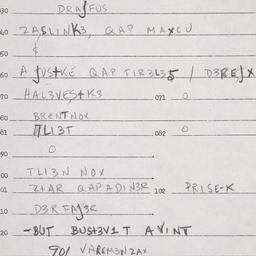 030 DRAſFUS
040 ZASLINK3, QAP MAXCU
50 &
60 A ſUSTKE QAP TIR3L35 / D3REſX
70 HAL3VESTK3 071 O
80 BRENTNOX
81 ПLI3T 082 O
90 O
00 TLI3N NOX
01 ZIAR QAPADIN3R 102 PRISE-K
10 D3RFM3R
20 -BUT BUSH3V1T AVINT
901 VAREM3NZAX